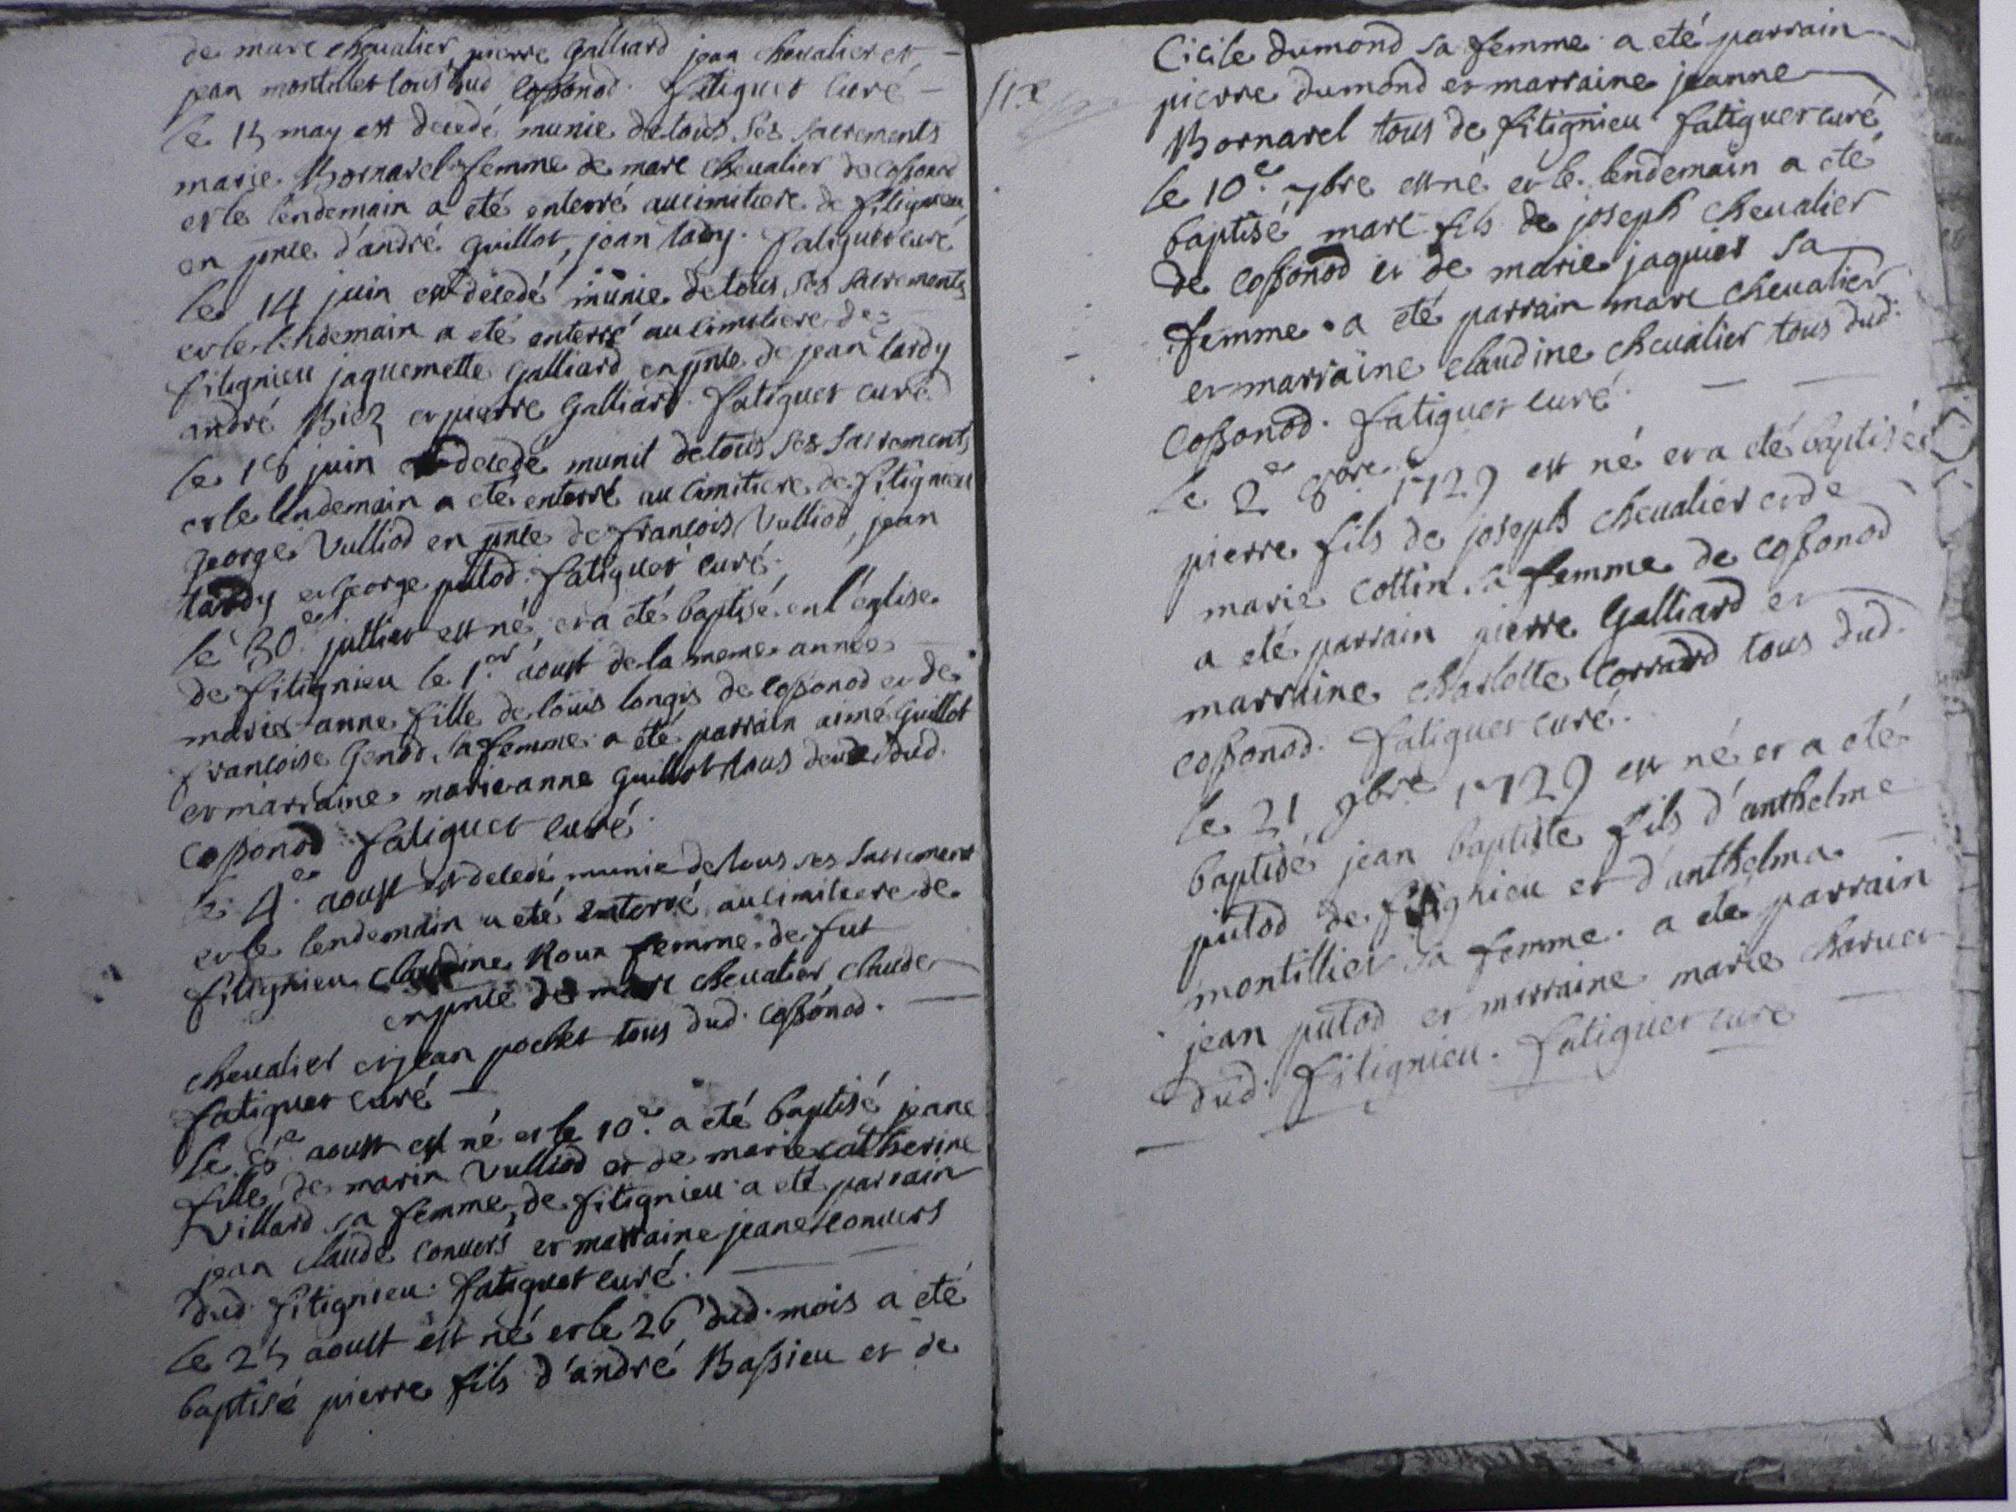 de marc chevalier, pierre Galliard jean chevalier et
jean montillet tous dud Cossonod. fatiguet curé
le 15 may est decedé munie de tous ses sacrements
marie Bornarel femme de marc chevalier de Cossonod
et le lendemain a eté enterré au cimitiere de fitignieu
en pnce d'andré Guillot, jean tardy. fatiguet curé
le 14 juin est decedé munie de tous ses sacrements
et le lendemain a eté enterré au cimitiere de
fitignieu jaquemette Galliard en pnce de jean tardy
andré Biez et pierre Galliard. fatiguet curé
le 18 juin est decedé munit de tous ses sacrements
et le lendemain a eté enterré au cimitiere de fitignieu
george Vulliod en pnce de francois Vulliod, jean
tardy et george putod. fatiguet curé.
le 30e. julliet est né, et a eté baptisé en l'eglise
de fitignieu le 1er aoust de la meme année
marie-anne fille de loüis longis de Cossonod et de
francoise Genod sa femme. a eté parrain aimé Guillot
et marraine marie anne Guillot tous deux dud.
Cossonod fatiguet curé.
le 4e. aoust est decedé munie de tous ses sacrement
et le lendemain a eté enterré au cimitiere de
fitignieu claudine Roux femme de fut
en pnce de marc chevalier, claude
chevalier et jean pochet tous dud. Cossonod.
fatiguet curé
le 8e aoust est né et le 10e. a eté baptisé jeane
fille de marin Vulliod et de marie catherine
Villard sa femme, de fitignieu a eté parrain
jean claude convers et marraine jeane convers
dud. fitignieu. fatiguet curé.
le 25 aoust est né et le 26 dud. mois a eté
baptisé pierre fils d'andré Bassieu et de
Cicile dumond sa femme. a eté parrain
pierre dumond et marraine jeanne
Bornarel tous de fitignieu fatiguet curé
le 10e. 7bre est né et le lendemain a eté
baptisé marc fils de joseph chevalier
de Cossonod et de marie jaquier sa
femme. a eté parrain marc chevalier
et marraine claudine chevalier tous dud.
Cossonod. fatiguet curé.
le 2e 8bre 1729 est né et a eté baptisé
pierre fils de joseph chevalier et de
marie Cottin sa femme de Cossonod
a eté parrain pierre Galliard et
marraine charlotte Corrard tous dud.
Cossonod. fatiguet curé.
le 21 9bre 1729 est né et a eté
baptisé jean baptiste fils d'anthelme
putod de fitignieu et d'anthelma
montillier sa femme. a eté parrain
jean putod et marraine marie
dud. fitignieu. fatiguet curé